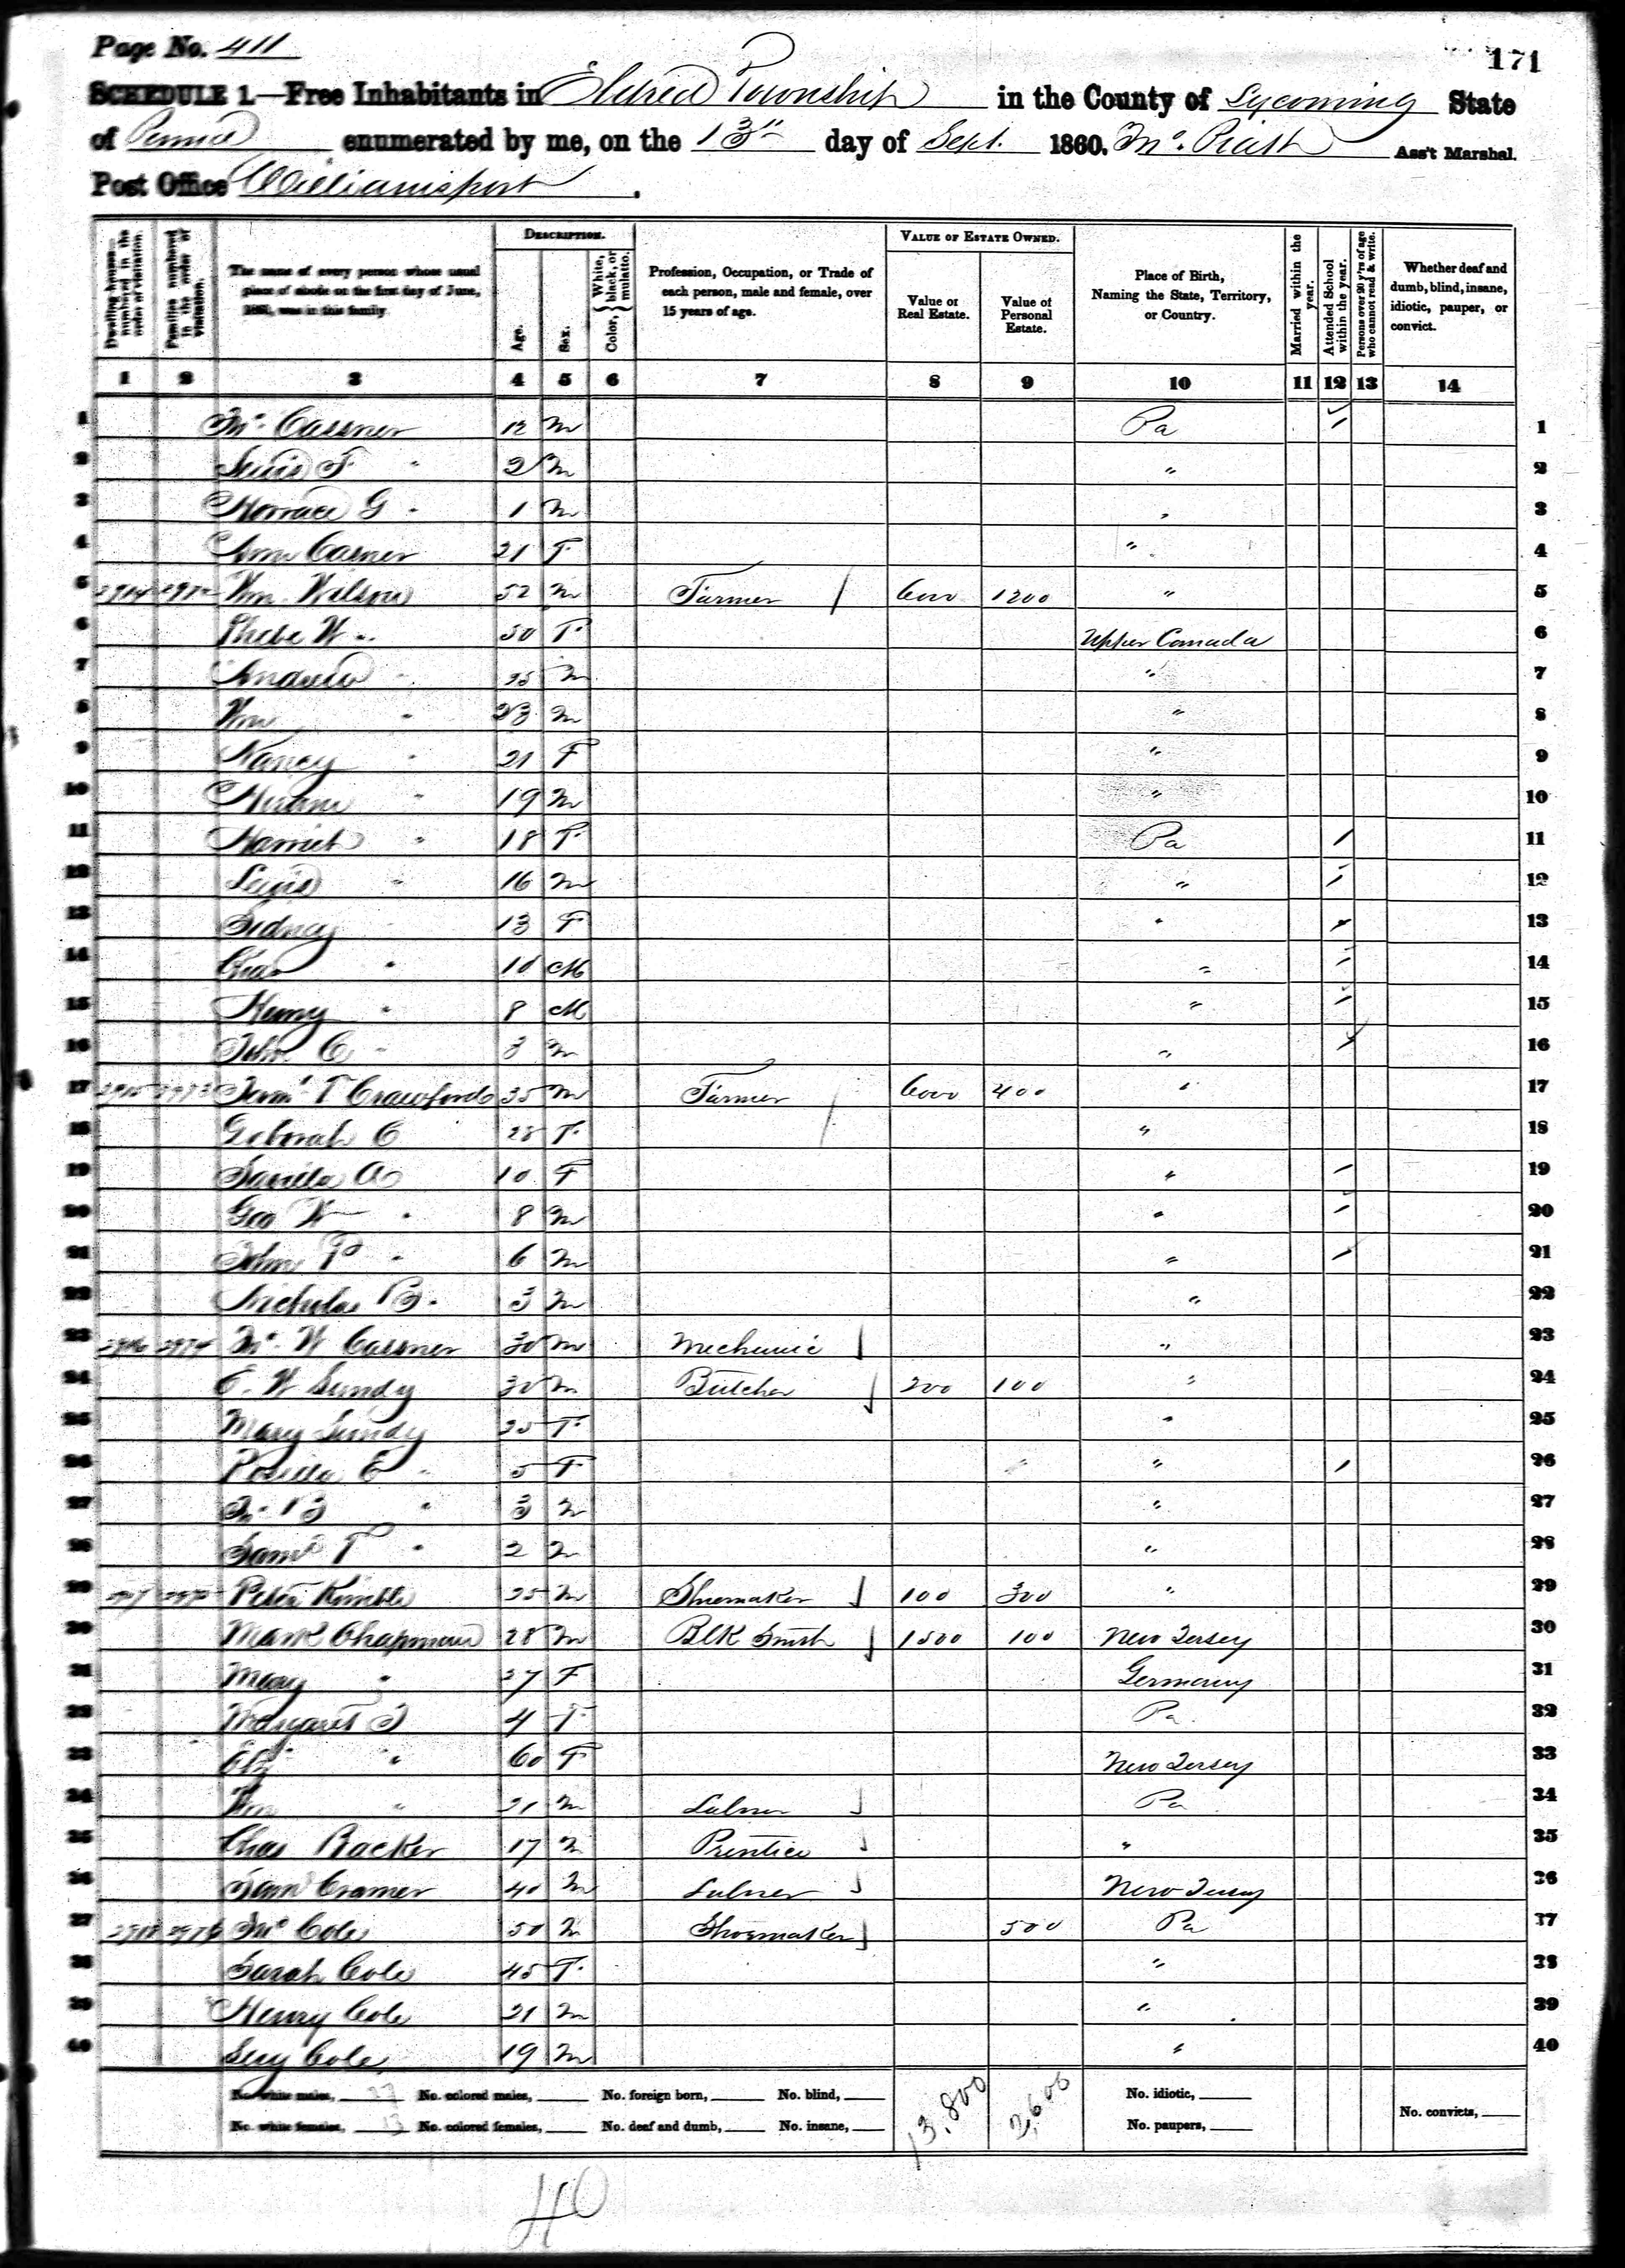 Page No. 411
171
SCHEDULE 1.—Free Inhabitants in Eldred Township in the County of Lycoming State
of Penna enumerated by me, on the 13" day of Sept. 1860. Ass't Marshal.
Post Office Williamsport.
Dwelling-houses numbered in the order of visitation.
Families numbered in the order of visitation.
The name of every person whose usual place of abode on the first day of June, 1860, was in this family.
DESCRIPTION.
Age.
Sex.
Color, { White, black, or mulatto.
Profession, Occupation, or Trade of each person, male and female, over 15 years of age.
VALUE OF ESTATE OWNED.
Value of Real Estate.
Value of Personal Estate.
Place of Birth, Naming the State, Territory, or Country.
Married within the year.
Attended School within the year.
Persons over 20 y'rs of age who cannot read & write.
Whether deaf and dumb, blind, insane, idiotic, pauper, or convict.
1 2 3 4 5 6 7 8 9 10 11 12 13 14
1 Jno. Cassner 12 m Pa / 1
2 Lewis F. " 2 m " 2
3 Horrace G " 1 m " 3
4 Ann Casner 21 F " 4
5 2914 2972 Wm. Wilson 52 m Farmer / 6000 1200 " 5
6 Phebe W " 50 F Upper Canada 6
7 Andrew " 25 m " 7
8 Wm " 23 m " 8
9 Nancy " 21 F " 9
10 Hiram " 19 m " 10
11 Harriet " 18 F Pa / 11
12 " 16 m " / 12
13 Sidney " 13 F " / 13
14 Chas " 10 M " / 14
15 Henry " 8 M " / 15
16 John C " 3 m " / 16
17 2915 2973 T Crawford 35 m Farmer / 6000 400 " 17
18 Deborah C 28 F " 18
19 A 10 F " / 19
20 Geo W " 8 m " / 20
21 John P " 6 m " / 21
22 Nicholas B. 3 m " 22
23 2916 2974 Jno. W Cassner 30 m Mechanic / " 23
24 E. W Sundy 30 m Butcher / 200 100 " 24
25 Mary Sundy 25 F " 25
26 Rosilla E " 5 F " / 26
27 " 3 m " 27
28 Saml T " 2 m " 28
29 2917 2975 Peter Kimble 25 m Shoemaker / 100 300 " 29
30 Mark Chapman 28 m Blk Smith / 1500 100 New Jersey 30
31 Mary " 27 F Germany 31
32 Margaret J 4 F Pa. 32
33 Eliz " 60 F New Jersey 33
34 Wm " 21 m Labner / Pa 34
35 Chas Backer 17 m Prentice / " 35
36 Saml Cramer 40 m Labner / New Jersey 36
37 2918 2976 Jno Cole 50 m Shoemaker / 500 Pa 37
38 Sarah Cole 45 F " 38
39 Henry Cole 21 m " 39
40 Levy Cole 19 m " 40
No. white males, 27 No. colored males, No. foreign born, No. blind, 13,800 2,600 No. idiotic,
No. white females, 13 No. colored females, No. deaf and dumb, No. insane, No. paupers, No. convicts,
40